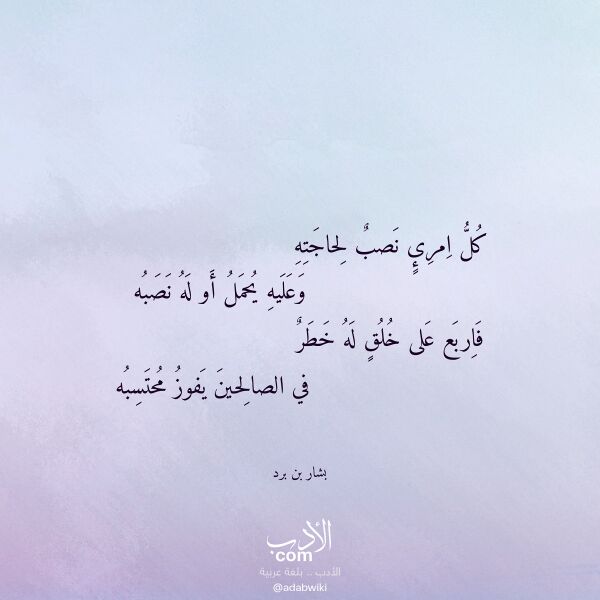 كُلُّ اِمرِئٍ نَصبٌ لِحاجَتِهِ
وَعَلَيهِ يُحمَلُ أَو لَهُ نَصَبُه
فَاِربَع عَلى خُلُقٍ لَهُ خَطَرٌ
في الصالِحينَ يَفوزُ مُحتَسِبُه
بشار بن برد
الأدب
com
الأدب .. بلغة عربية
@adabwiki